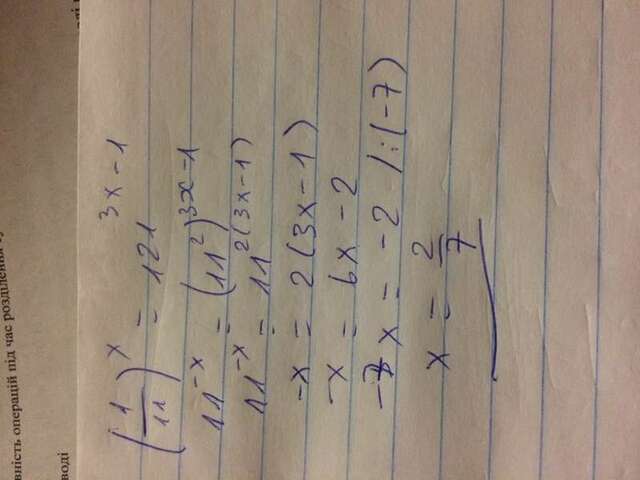 (1/11)^x = 121^(3x-1)
11^(-x) = (11^2)^(3x-1)
11^(-x) = 11^(2(3x-1))
-x = 2(3x-1)
-x = 6x-2
-7x = -2 /:(-7)
x = 2/7
вність операцій під час розділення
воді